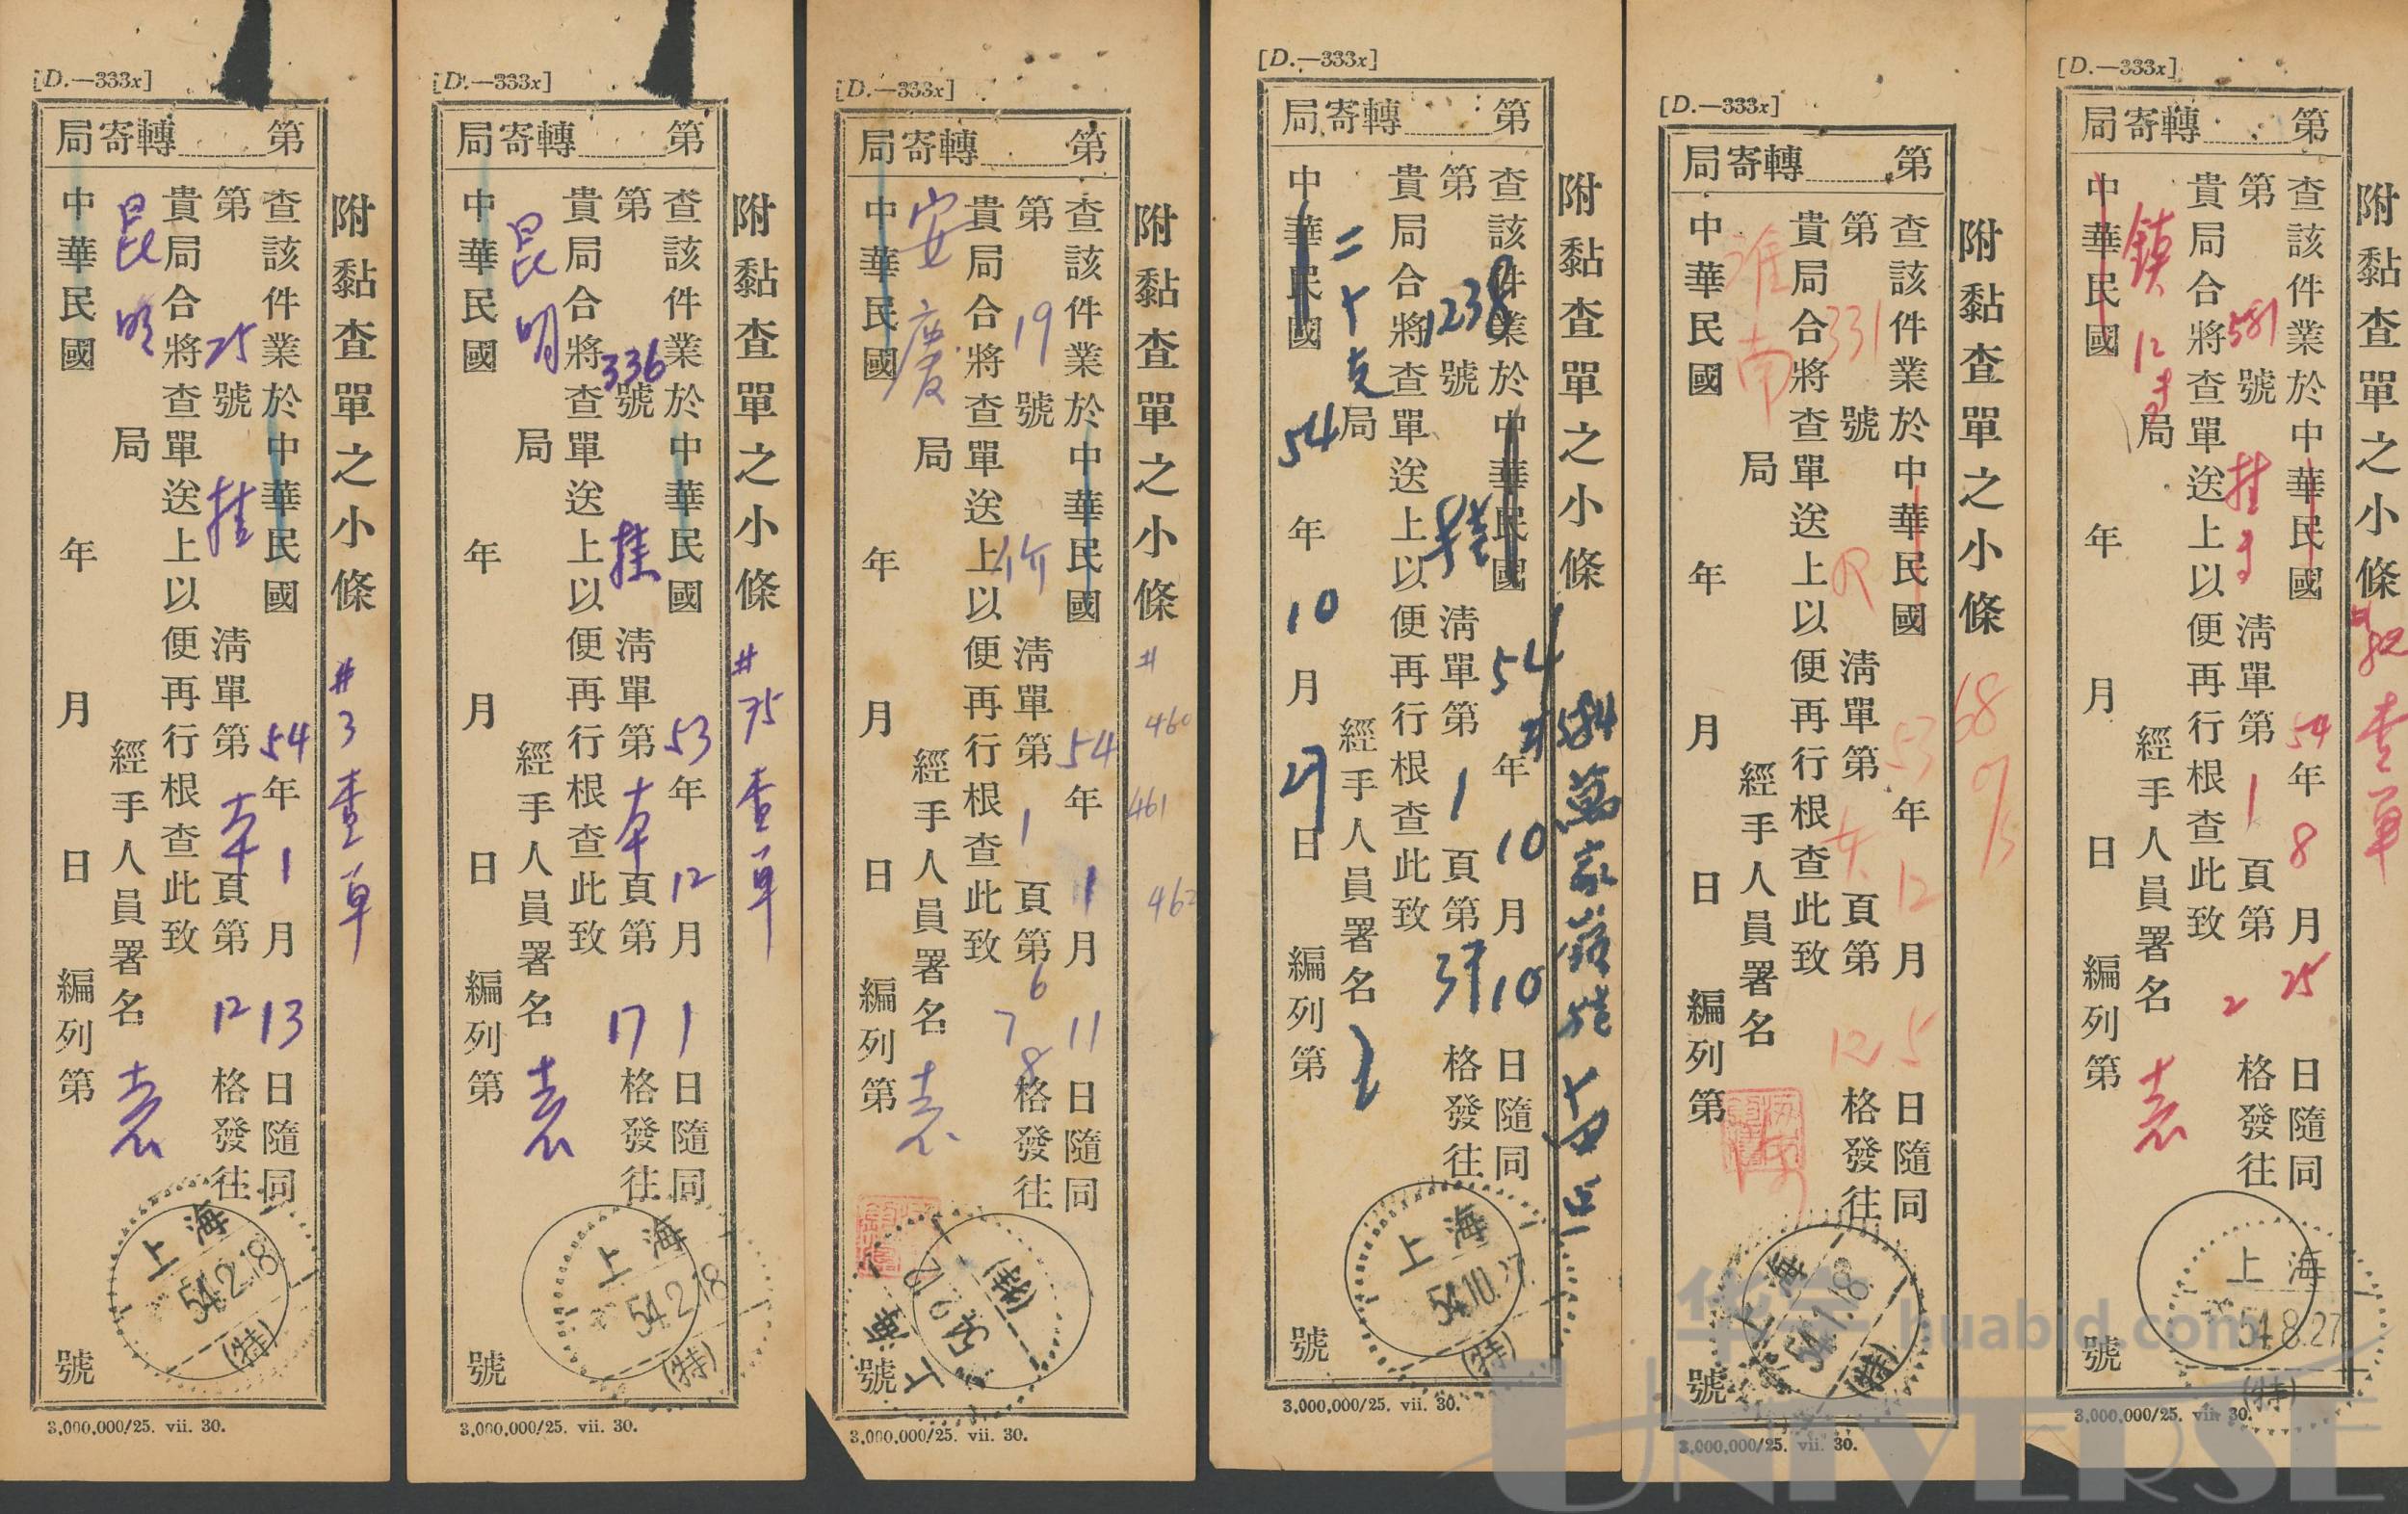 [D.—333x]
第 轉寄局
附黏查單之小條 #3查单
查該件業於中華民國54年1月13日隨同
第25號挂清單第本頁第12格發往
貴局合將查單送上以便再行根查此致
昆明局 經手人員署名 袁
中華民國 年 月 日 編列第 號
上海
54.2.18
(特)
3,000,000/25. vii. 30.
[D.—333x]
第 轉寄局
附黏查單之小條 #75查单
查該件業於中華民國53年12月1日隨同
第336號挂清單第本頁第17格發往
貴局合將查單送上以便再行根查此致
昆明局 經手人員署名 袁
中華民國 年 月 日 編列第 號
上海
54.2.18
(特)
3,000,000/25. vii. 30.
[D.—333x]
第 轉寄局
附黏查單之小條 # 460 461 462
查該件業於中華民國54年1月11日隨同
第19號 清單第1頁第6 7 8格發往
貴局合將查單送上以便再行根查此致
安慶局 經手人員署名 袁
中華民國 年 月 日 編列第 號
上海
(特)
3,000,000/25. vii. 30.
[D.—333x]
第 轉寄局
附黏查單之小條
查該件業於中華民國54年10月10日隨同
第1238號挂清單第1頁第 格發往
貴局合將查單送上以便再行根查此致
局 經手人員署名
中華民國54年10月 日 編列第 號
上海
54.10.
(特)
3,000,000/25. vii. 30.
[D.—333x]
第 轉寄局
附黏查單之小條 68
查該件業於中華民國53年12月5日隨同
第331號R清單第 頁第12格發往
貴局合將查單送上以便再行根查此致
淮南局 經手人員署名
中華民國 年 月 日 編列第 號
上海
54.1.18
(特)
3,000,000/25. vii. 30.
[D.—333x]
第 轉寄局
附黏查單之小條 查单
查該件業於中華民國54年8月25日隨同
第581號挂 清單第1頁第2格發往
貴局合將查單送上以便再行根查此致
鎮 12 局 經手人員署名 袁
中華民國 年 月 日 編列第 號
上海
54.8.27
(特)
3,000,000/25. vii. 30.
华宇 huabid.com
UNIVERSE